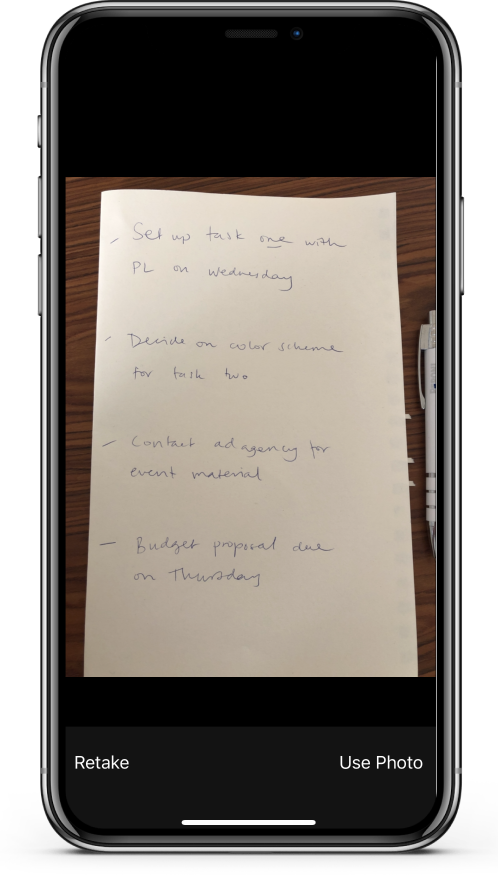 - Set up task one with
PL on Wednesday
- Decide on color scheme
for task two
- Contact ad agency for
event material
- Budget proposal due
on Thursday
Retake Use Photo